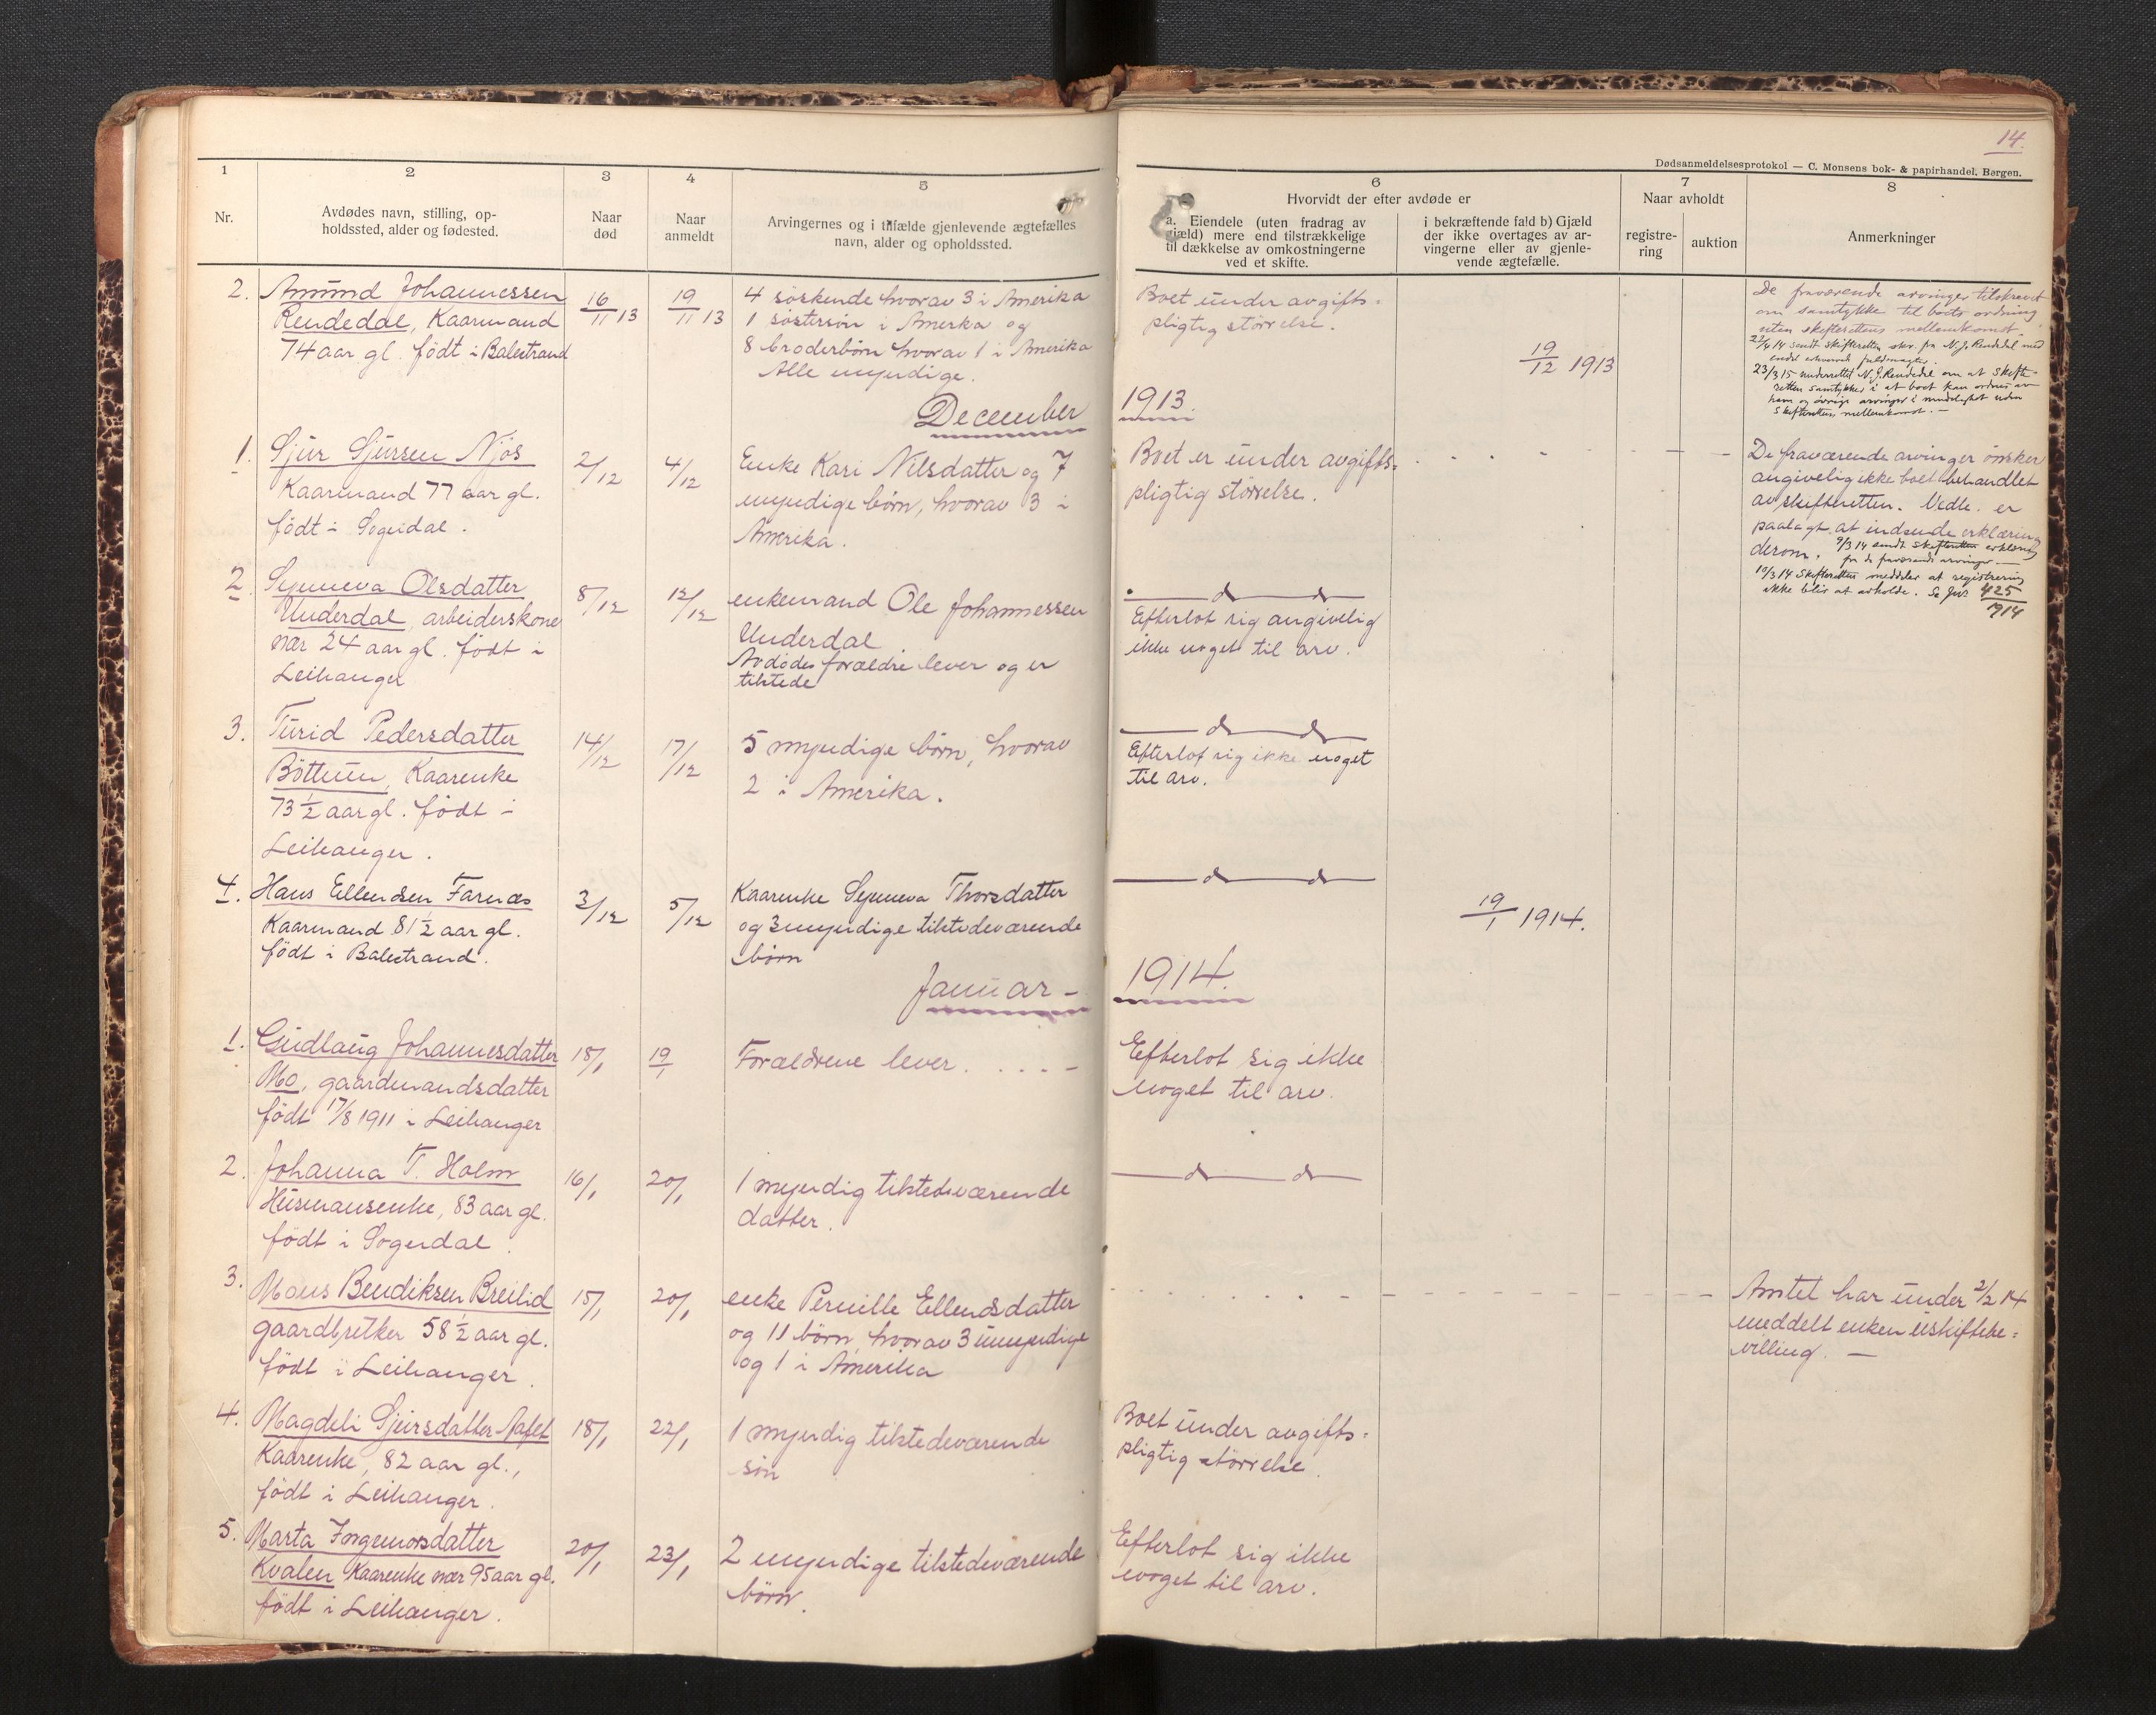 14.
Dødsanmeldelsesprotokol — C. Monsens bok- & papirhandel, Bergen.
1
2
3
4
5
6
7
8
Nr.
Avdødes navn, stilling, op-
holdssted, alder og fødested.
Naar
død
Naar
anmeldt
Arvingernes og i tilfælde gjenlevende ægtefælles
navn, alder og opholdssted.
Hvorvidt der efter avdøde er
a. Eiendele (uten fradrag av
gjæld) mere end tilstrækkelige
til dækkelse av omkostningerne
ved et skifte.
i bekræftende fald b) Gjæld
der ikke overtages av ar-
vingerne eller av gjenle-
vende ægtefælle.
Naar avholdt
registre-
ring
auktion
Anmerkninger
2.
Amund Johannessen
Rendedal, Kaarmand
74 aar gl. født i Balestrand
16/11 13
19/11 13
4 søskende hvorav 3 i Amerika
1 søstersøn i Amerika og
8 broderbørn hvorav 1 i Amerika
Alle myndige.
Boet under avgifts-
pligtig størrelse.
19/12 1913
De fraværende arvinger tilskrevet
om samtykke til boets ordning
uten skifterettens mellemkomst.
22/4 14 sendt skifteretten skr. fra N. J. Rendedal med
endel fuldmagter.
23/3 15 underrettet N. J. Rendedal om at skifte-
retten samtykker i at boet kan ordnes av
ham og øvrige arvinger i mindelighet uden
skifterettens mellemkomst. —
December 1913.
1.
Sjur Sjursen Njøs
Kaarmand 77 aar gl.
født i Sogndal.
2/12
4/12
Enke Kari Nilsdatter og 7
myndige børn, hvorav 3 i
Amerika.
Boet er under avgifts-
pligtig størrelse.
De fraværende arvinger ønsker
angivelig ikke boet behandlet
av skifteretten. Vedk. er
paalagt at indsende erklæring
derom. 9/3 14 sendt skifteretten erklæring
fra de fraværende arvinger. —
10/3 14 Skifteretten meddeler at registrering
ikke blir at avholde. Se Jnr. 425/1914
2
Synneva Olsdatter
Underdal, arbeiderskone
nær 24 aar gl. født i
Leikanger
8/12
12/12
enkemand Ole Johannessen
Underdal
Avdødes forældre lever og er
tilstede
— d — d —
Efterlot sig angivelig
ikke noget til arv.
3.
Turid Pedersdatter
Bøttun, Kaarenke
73 ½ aar gl. født i
Leikanger.
14/12
17/12
5 myndige børn, hvorav
2 i Amerika.
— d — d —
Efterlot sig ikke noget
til arv.
4.
Hans Ellendsen Farnæs
Kaarmand 81 ½ aar gl.
født i Balestrand.
3/12
5/12
Kaarenke Synneva Thorsdatter
og 3 myndige tilstedeværende
børn
— d — d —
19/1 1914.
Januar - 1914.
1.
Gudlaug Johannesdatter
Mo, gaardmandsdatter
født 17/8 1911 i Leikanger
18/1
19/1
Forældrene lever.
Efterlot sig ikke
noget til arv.
2.
Johanna T. Holm
Husmansenke, 83 aar gl.
født i Sogndal.
16/1
20/1
1 myndig tilstedeværende
datter.
— d — d —
3.
Mons Bendiksen Breilid
gaardbruker 58 ½ aar gl.
født i Leikanger.
15/1
20/1
enke Pernille Ellendsdatter
og 11 børn, hvorav 3 umyndige
og 1 i Amerika
Amtet har under 2/2 14
meddelt enken uskiftebe-
villing. —
4.
Magdeli Sjursdatter
Kaarenke, 82 aar gl.,
født i Leikanger.
18/1
22/1
1 myndig tilstedeværende
søn
Boet under avgifts-
pligtig størrelse.
5.
Marta Ingemorsdatter
Kvalen Kaarenke nær 95 aar gl.
født i Leikanger.
20/1
23/1
2 myndige tilstedeværende
børn.
Efterlot sig ikke
noget til arv.